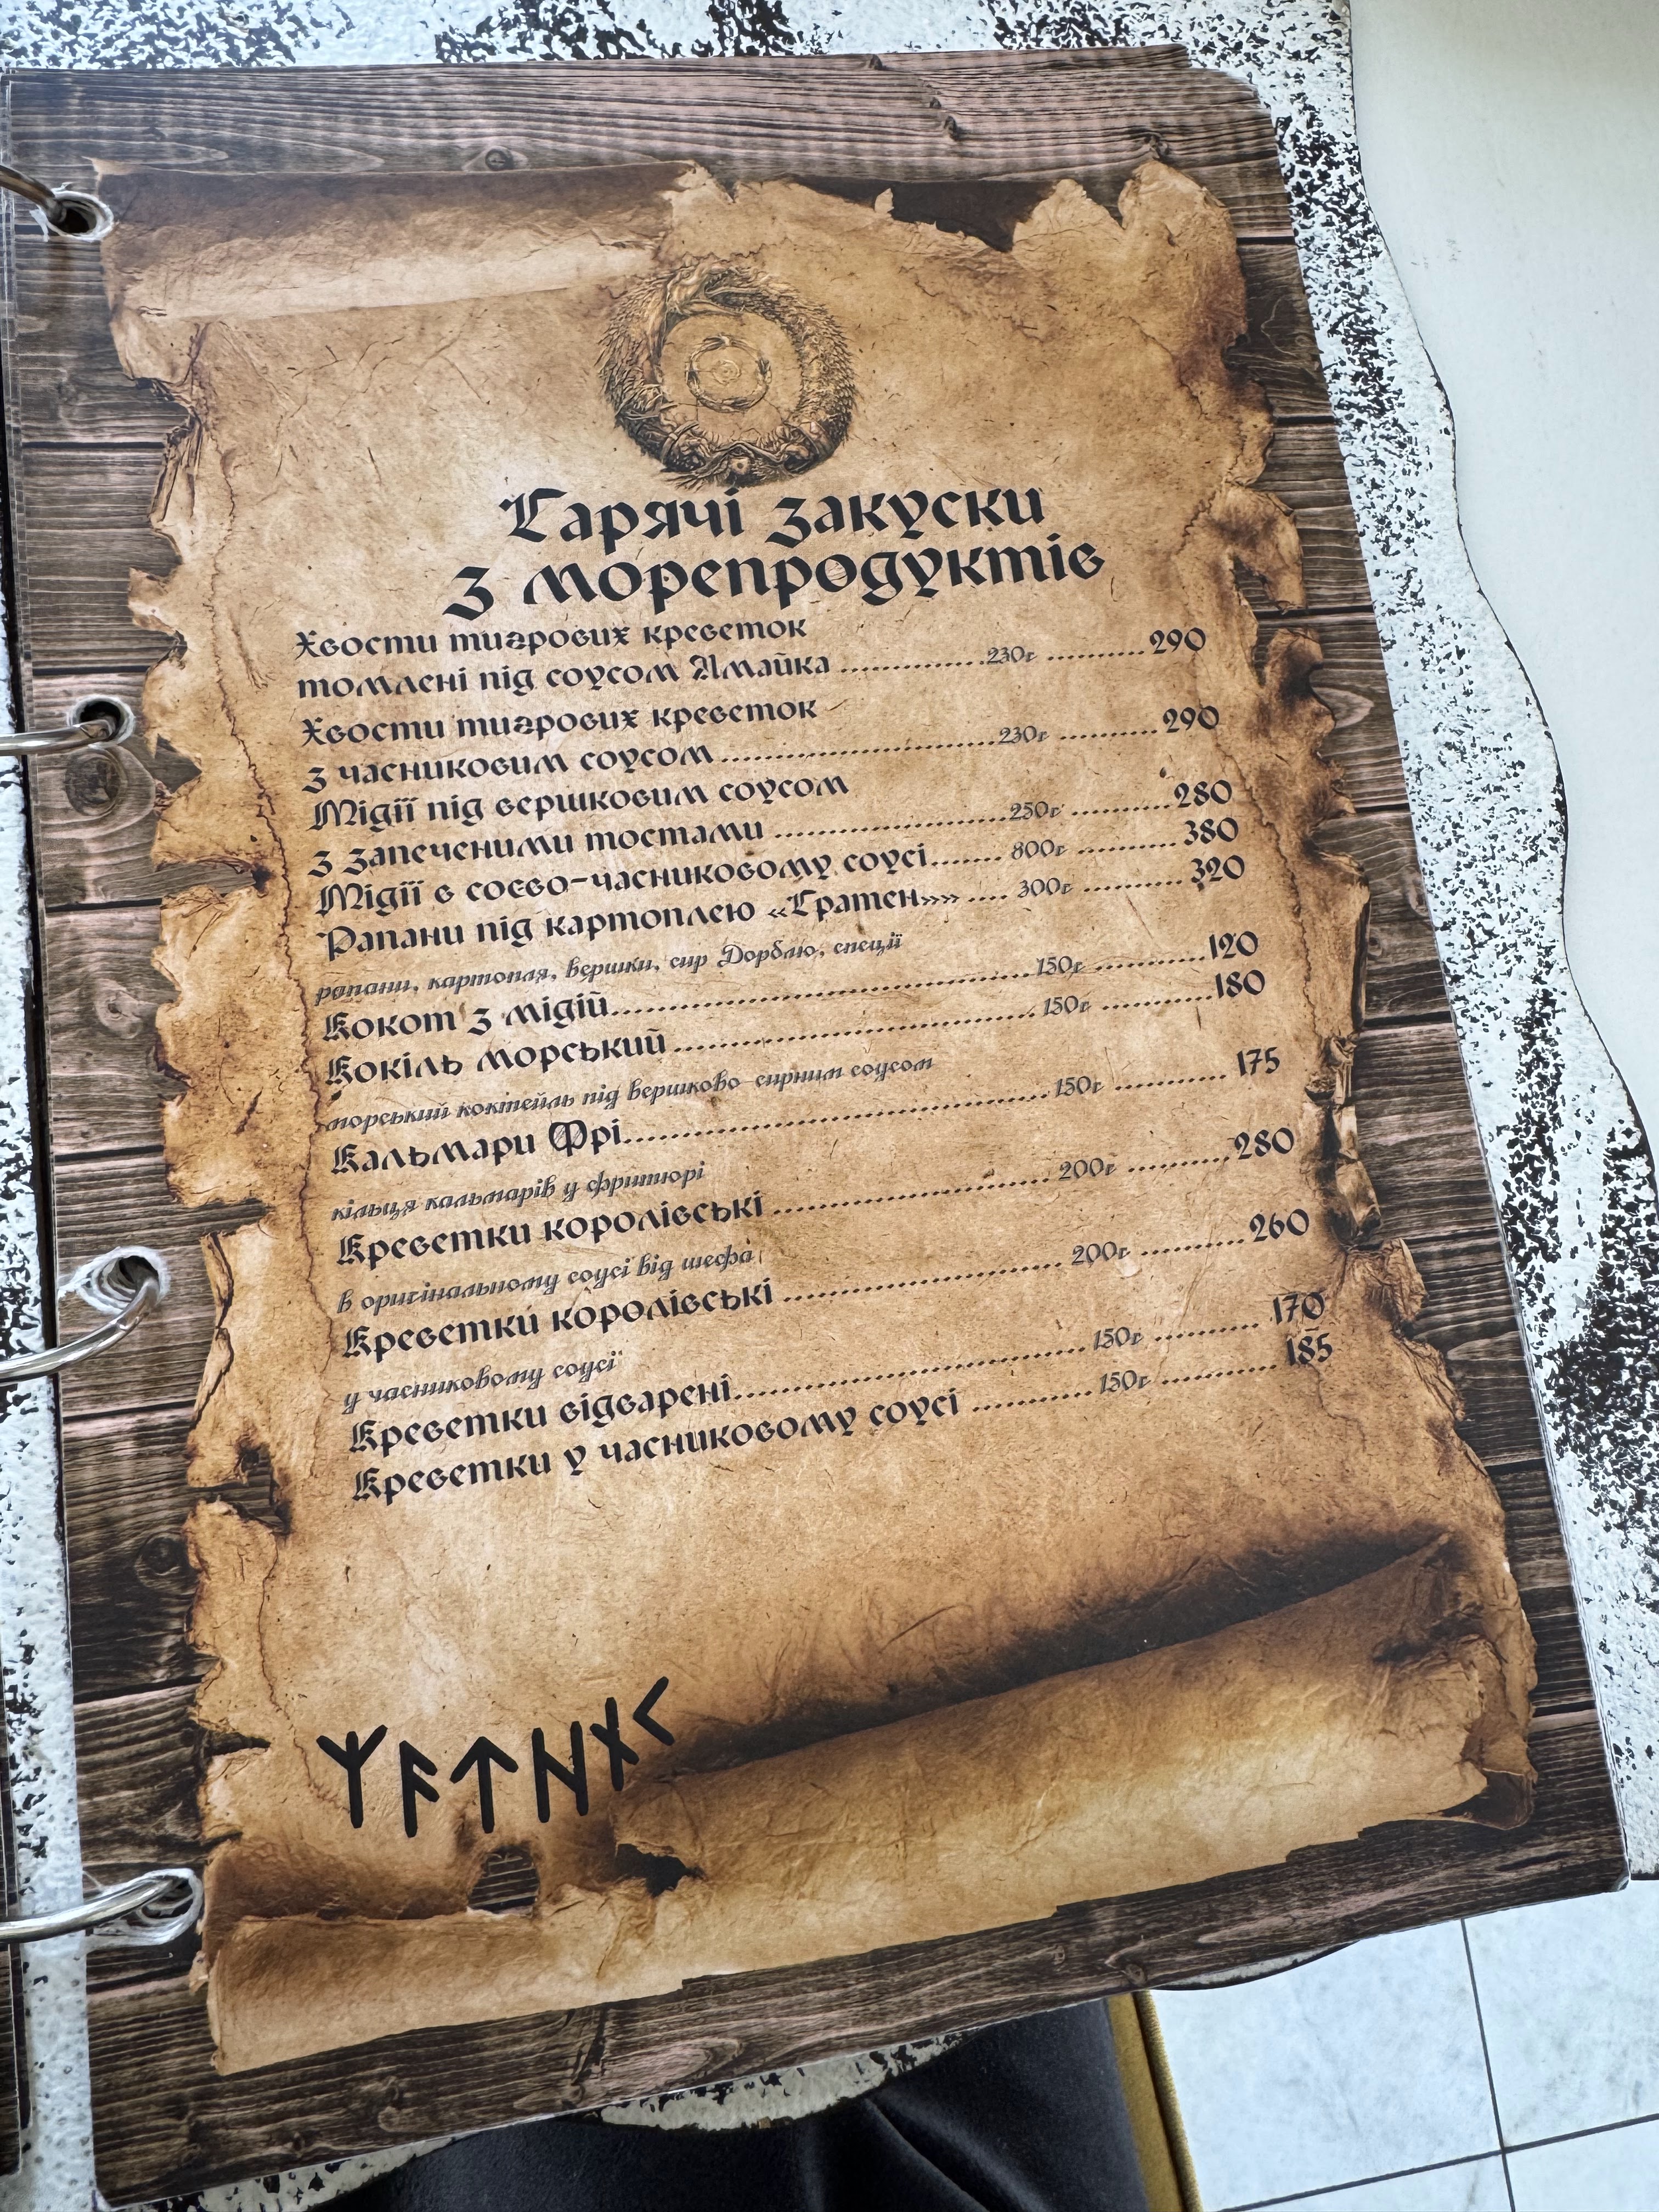 Гарячі закуски
з морепродуктів
Хвости тигрових креветок
томлені під соусом Ямайка ................230г ...........290
Хвости тигрових креветок
з часниковим соусом...............................230г ...........290
Мідії під вершковим соусом
з запеченими тостами ..........................250г ...........280
Мідії в соєво-часниковому соусі........ 800г ...........380
Рапани під картоплею «Гратен»» .... 300г ...........320
рапани, картопля, вершки, сир Дорблю, спеції
Кокот з мідій................................................150г ............120
Кокіль морський .........................................150г ............180
морський коктейль під вершково-сирним соусом
Кальмари Фрі................................................150г ............175
кільця кальмарів у фритюрі
Креветки королівські ................................200г ...........280
в оригінальному соусі від шефа
Креветки королівські ................................200г ...........260
у часниковому соусі
Креветки відварені........................................150г ............170
Креветки у часниковому соусі ..............150г .............185
ᛉᚨᛏᚺᚾᚲ